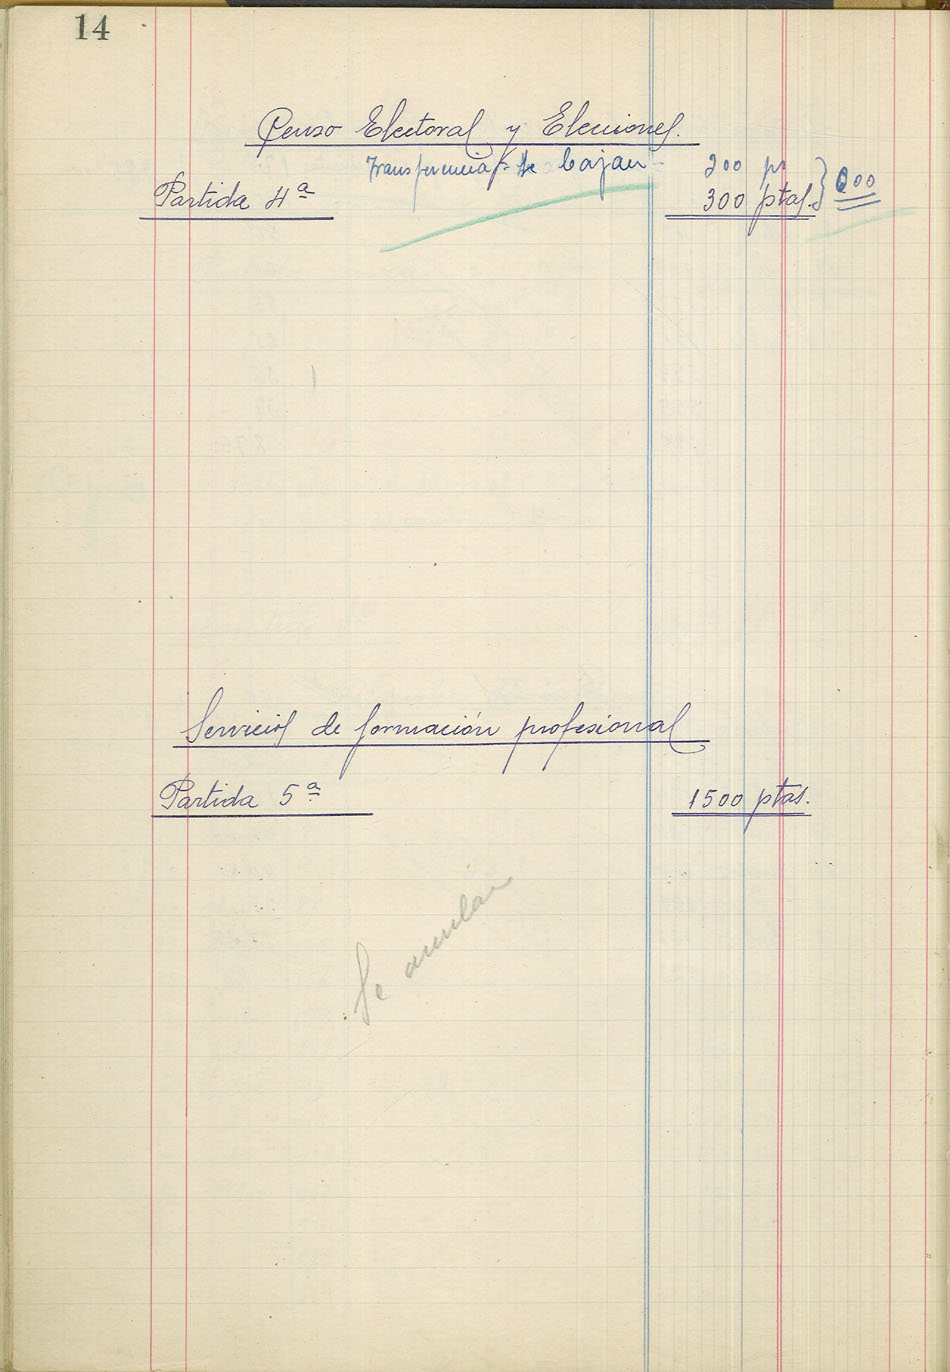 14
Censo Electoral y Elecciones.
Transferencia se bajan 200 pts
Partida 4ª 300 ptas. 000
Servicios de formación profesional
Partida 5ª 1500 ptas.
Se anulan